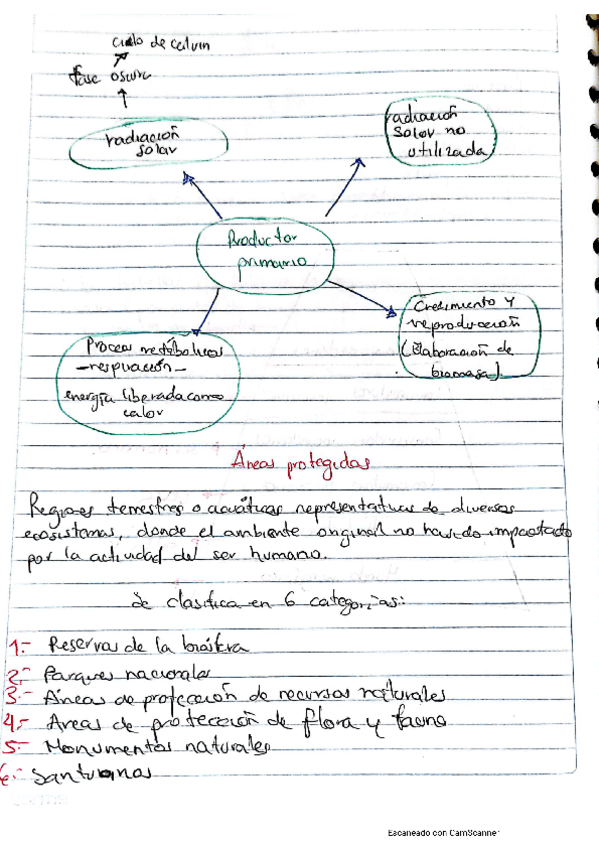 ciclo de calvin
fase oscura
radiación
solar
radiación
solar no
utilizada
Productor
primario
Crecimiento y
reproducción
(Elaboración de
biomasa).
Procesos metabolicos
-respiración-
energía liberada como
calor
Áreas protegidas
Regiones terrestres o acuáticas representativas de diversos
ecosistemas, donde el ambiente original no ha sido impactado
por la actividad del ser humano.
se clasifica en 6 categorías:
1.- Reservas de la biosfera
2.- Parques nacionales
3.- Áreas de protección de recursos naturales
4.- Areas de protección de flora y fauna
5.- Monumentos naturales
6.- Santuarios
Escaneado con CamScanner